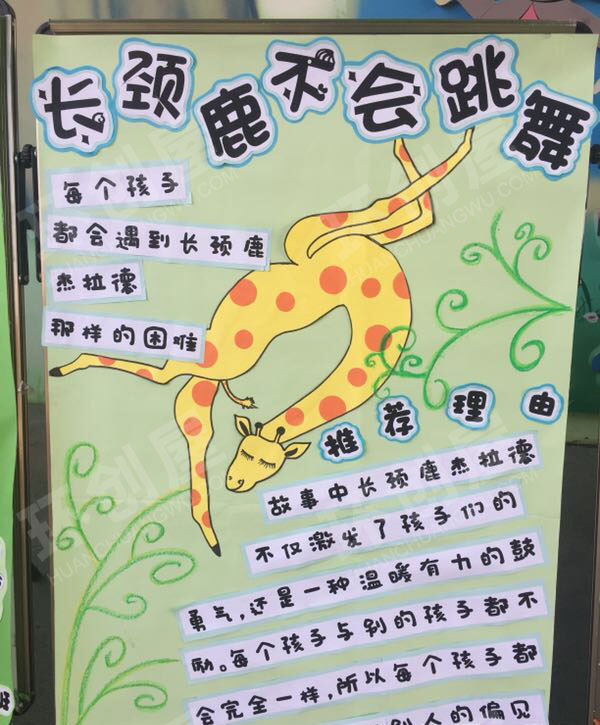 长颈鹿不会跳舞
每个孩子
都会遇到长颈鹿
杰拉德
那样的困难
推荐理由
故事中长颈鹿杰拉德
不仅激发了孩子们的
勇气，还是一种温暖有力的鼓
励。每个孩子与别的孩子都不
会完全一样，所以每个孩子都
的偏见
环创屋
HUANCHUANGWU.COM